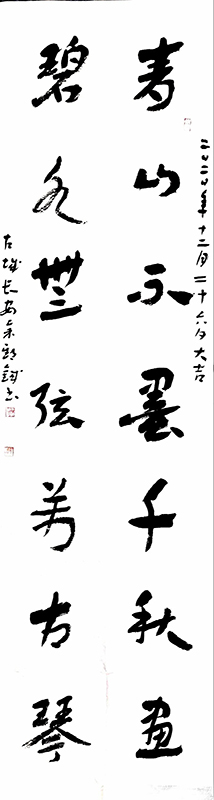 二〇二〇年十二月二十六日大吉
青山不墨千秋畫
碧水無弦萬古琴
古城长安书